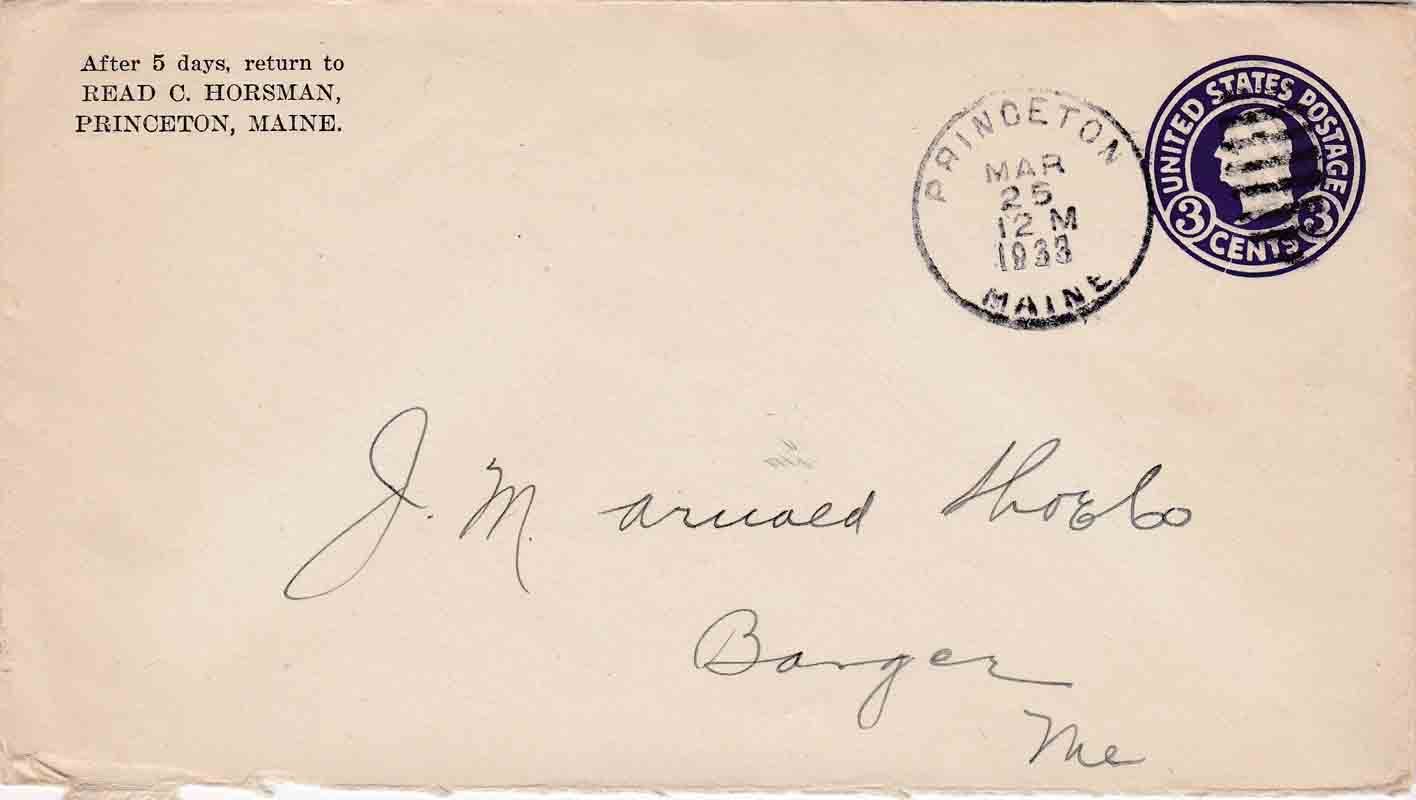 After 5 days, return to
READ C. HORSMAN,
PRINCETON, MAINE.
PRINCETON
MAR
25
12 M
1933
MAINE
UNITED STATES POSTAGE
3 CENTS 3
J. M. arnold Shoe Co
Banger
Me